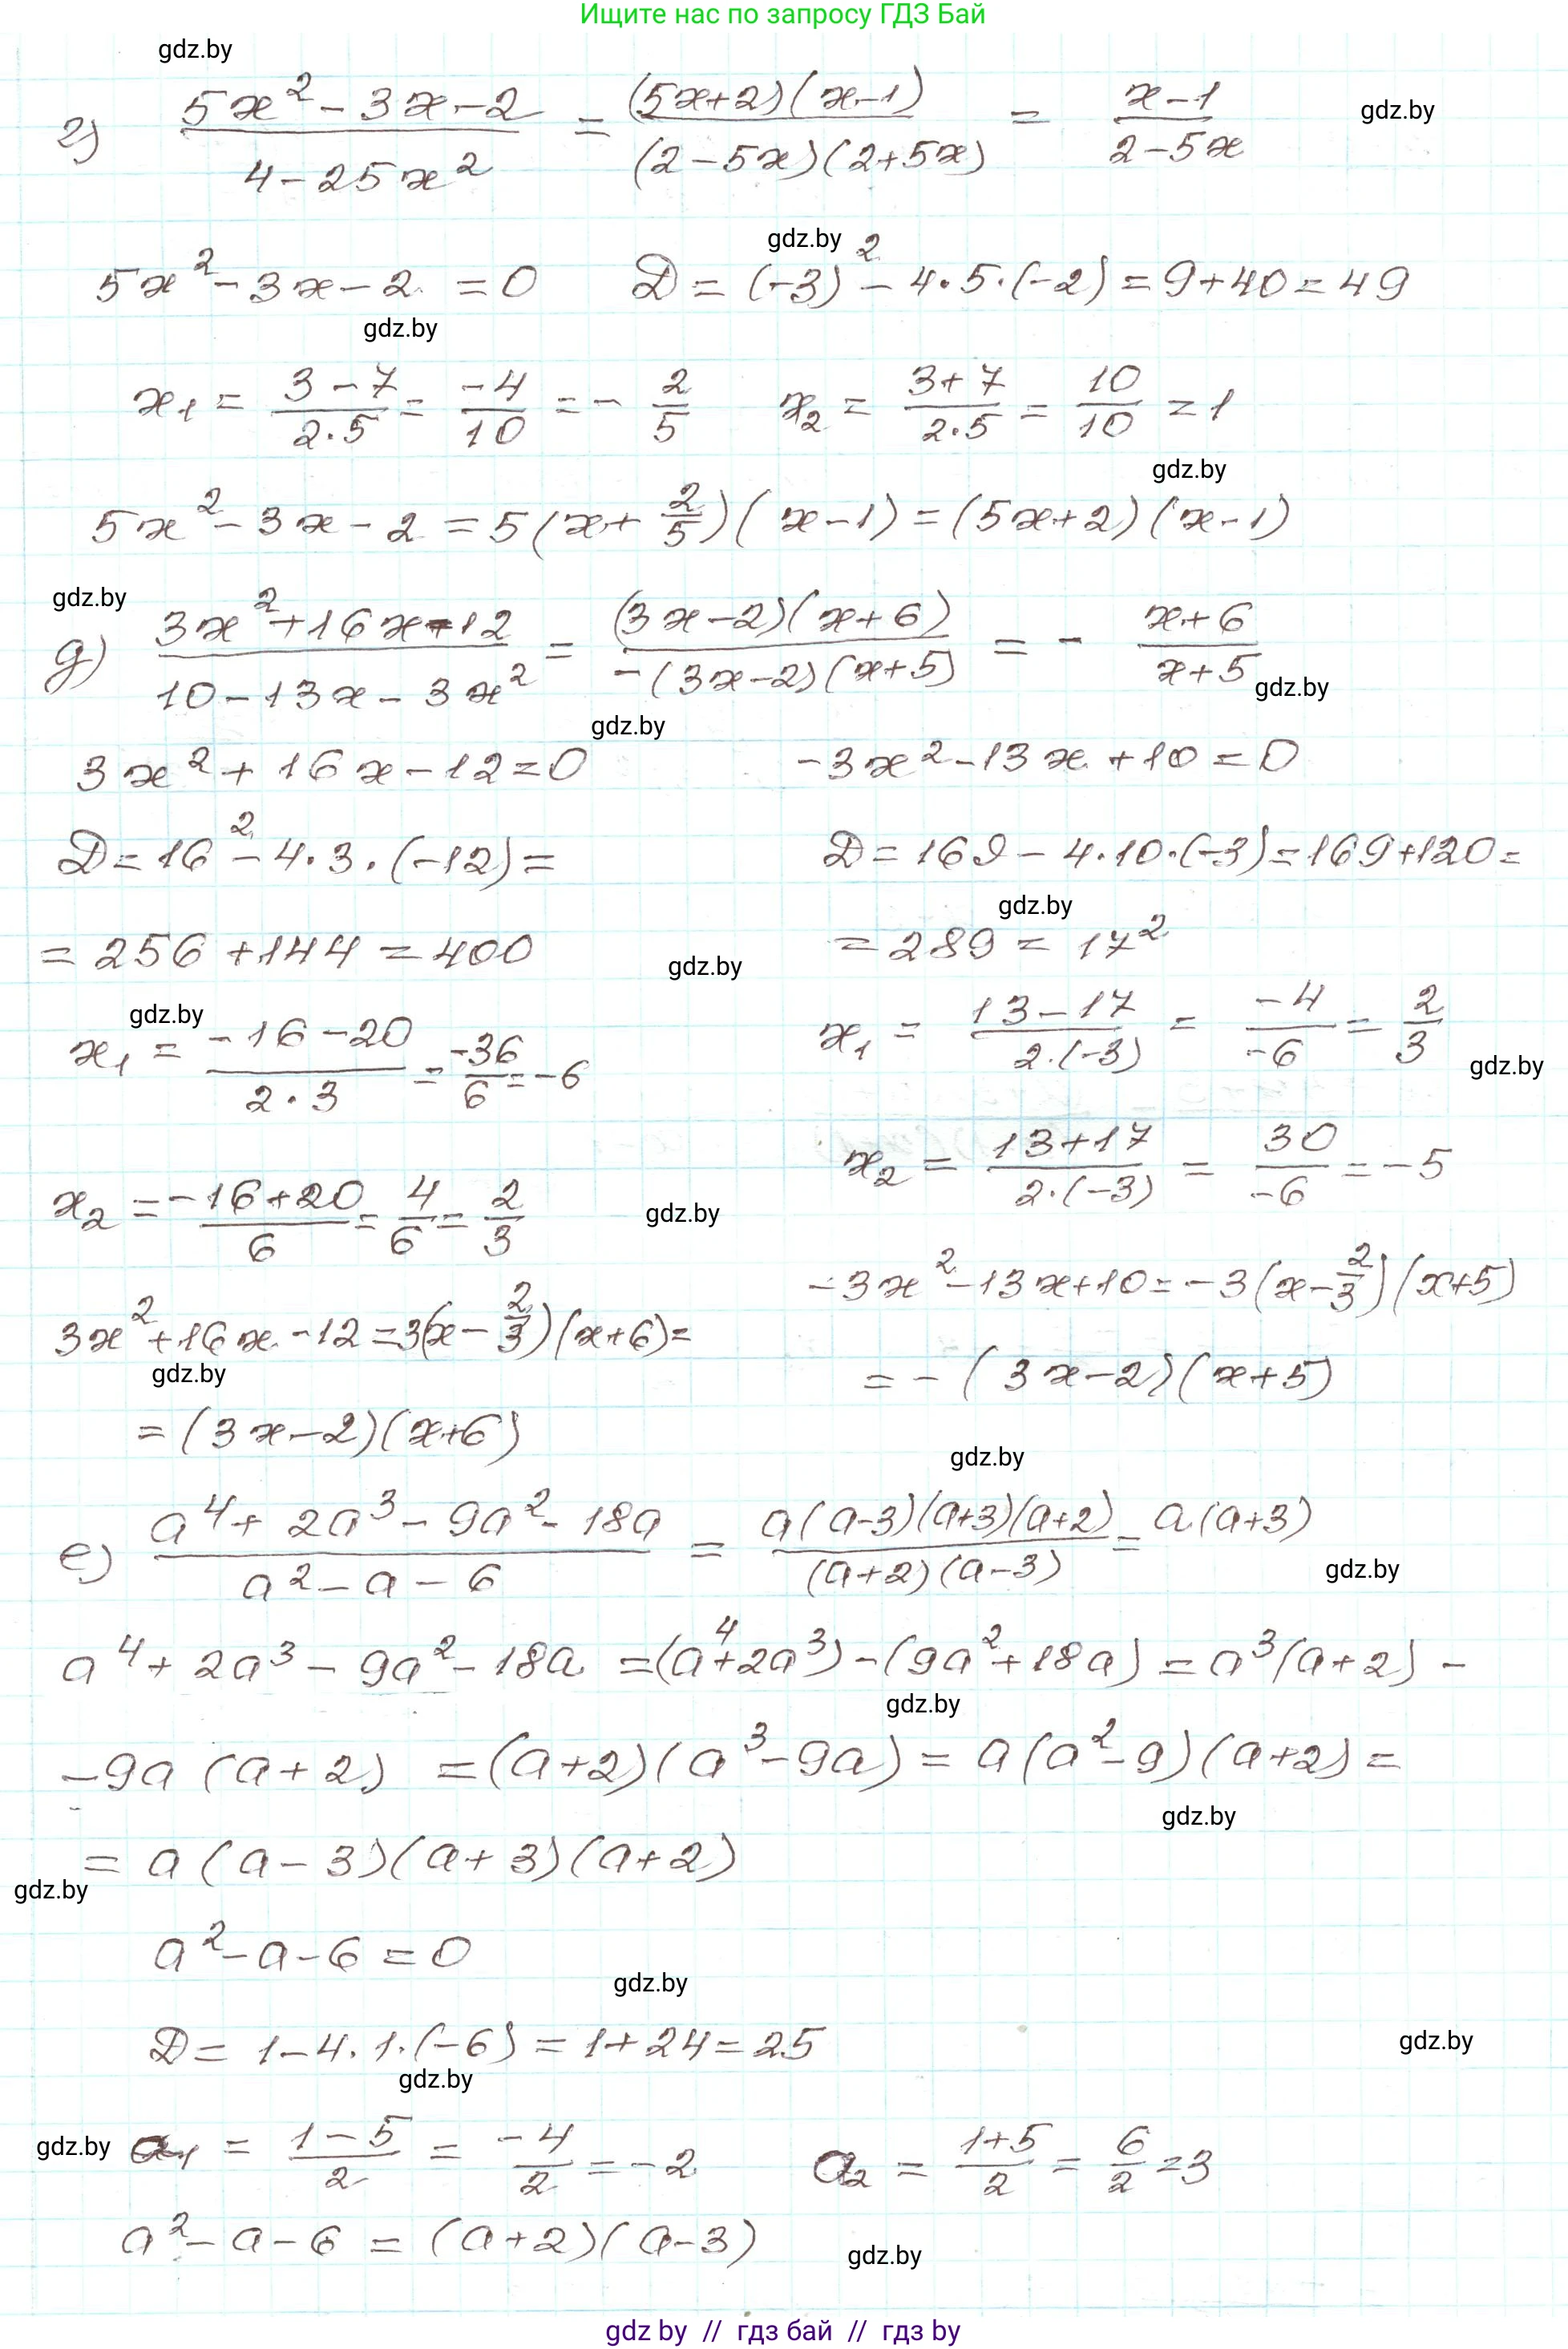 Ищите нас по запросу ГДЗ Бай
gdz.by
г) (5x² - 3x - 2)/(4 - 25x²) = ((5x+2)(x-1))/((2-5x)(2+5x)) = (x-1)/(2-5x)
gdz.by
gdz.by
5x² - 3x - 2 = 0 D = (-3)² - 4·5·(-2) = 9+40 = 49
gdz.by
x₁ = (3-7)/(2·5) = -4/10 = - 2/5 x₂ = (3+7)/(2·5) = 10/10 = 1
gdz.by
5x² - 3x - 2 = 5(x + 2/5)(x-1) = (5x+2)(x-1)
gdz.by
д) (3x² + 16x - 12)/(10 - 13x - 3x²) = ((3x-2)(x+6))/(-(3x-2)(x+5)) = - (x+6)/(x+5)
gdz.by
gdz.by
3x² + 16x - 12 = 0 -3x² - 13x + 10 = 0
D = 16² - 4·3·(-12) = D = 169 - 4·10·(-3) = 169+120 =
gdz.by
= 256 + 144 = 400 = 289 = 17²
gdz.by
gdz.by
x₁ = (-16-20)/(2·3) = -36/6 = -6 x₁ = (13-17)/(2·(-3)) = -4/-6 = 2/3
gdz.by
x₂ = (-16+20)/6 = 4/6 = 2/3 x₂ = (13+17)/(2·(-3)) = 30/-6 = -5
gdz.by
3x² + 16x - 12 = 3(x - 2/3)(x+6) = -3x² - 13x + 10 = -3(x - 2/3)(x+5)
gdz.by
= (3x-2)(x+6) = - (3x-2)(x+5)
gdz.by
е) (a⁴ + 2a³ - 9a² - 18a)/(a² - a - 6) = (a(a-3)(a+3)(a+2))/((a+2)(a-3)) = a(a+3)
gdz.by
a⁴ + 2a³ - 9a² - 18a = (a⁴+2a³) - (9a²+18a) = a³(a+2) -
gdz.by
- 9a(a+2) = (a+2)(a³-9a) = a(a²-9)(a+2) =
gdz.by
= a(a-3)(a+3)(a+2)
gdz.by
a² - a - 6 = 0
gdz.by
D = 1 - 4·1·(-6) = 1+24 = 25
gdz.by
gdz.by
gdz.by
a₁ = (1-5)/2 = -4/2 = -2 a₂ = (1+5)/2 = 6/2 = 3
a² - a - 6 = (a+2)(a-3)
gdz.by
gdz by // гдз бай // гдз by